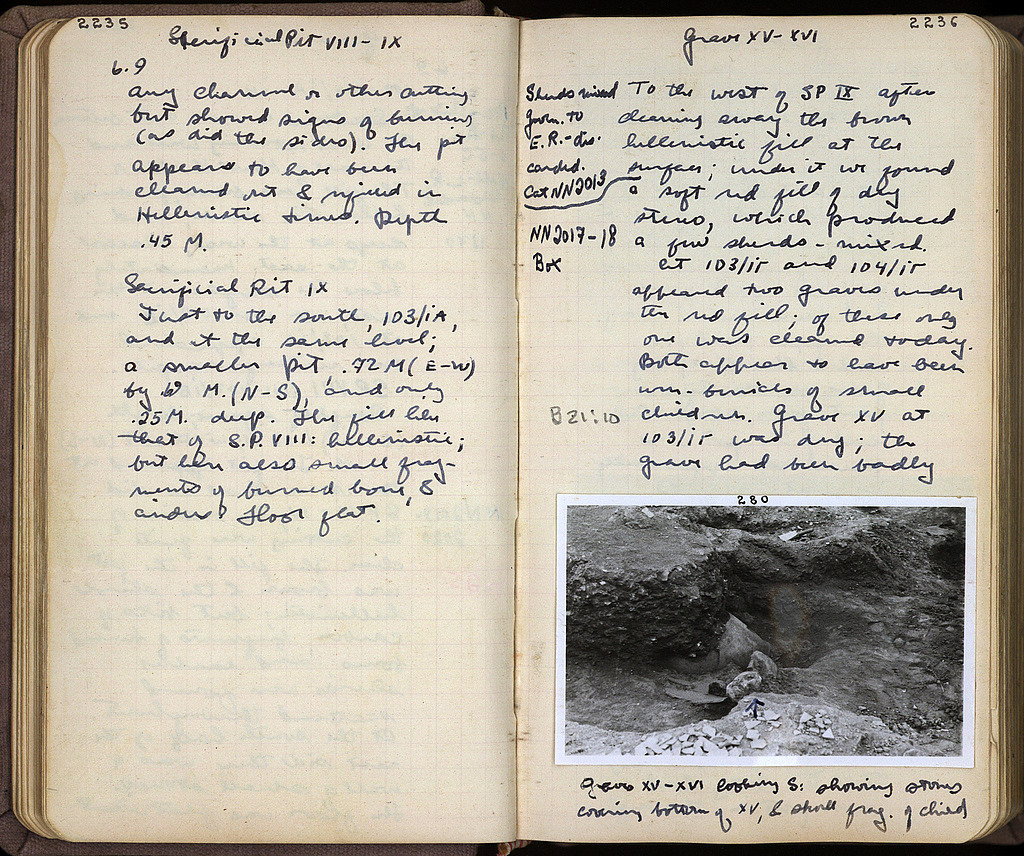 2235
Sacrificial Pit VIII-IX
6.9
any charcoal or other
but showed signs of burning
(as did the sides). The pit
appears to have been
cleared out & refilled in
Hellenistic times. Depth
.45 M.
Sacrificial Pit IX
Just to the south, 103/ΙΑ,
and at the same level;
a smaller pit, .72 M (E-W)
by M. (N-S), and only
.25 M. deep. The fill like
that of S.P. VIII: hellenistic;
but here also small frag-
ments of burned bone, &
cinders. Floor flat.
2236
Grave XV-XVI
Sherds mixed
Geom. to
E.R.-dis-
carded.
Cat NN2013
NN2017-18
Box
B21:10
To the west of SP IX after
clearing away the brown
hellenistic fill at the
surface; under it we found
a soft red fill of dug
stereo, which produced
a few sherds - mixed.
At 103/ΙΓ and 104/ΙΓ
appeared two graves under
the red fill; of these only
one was cleared today.
Both appear to have been
urn-burials of small
children. Grave XV at
103/ΙΓ was dug; the
grave had been badly
280
Grave XV-XVI looking S: showing stones
covering bottom of XV, & skull frag. of child